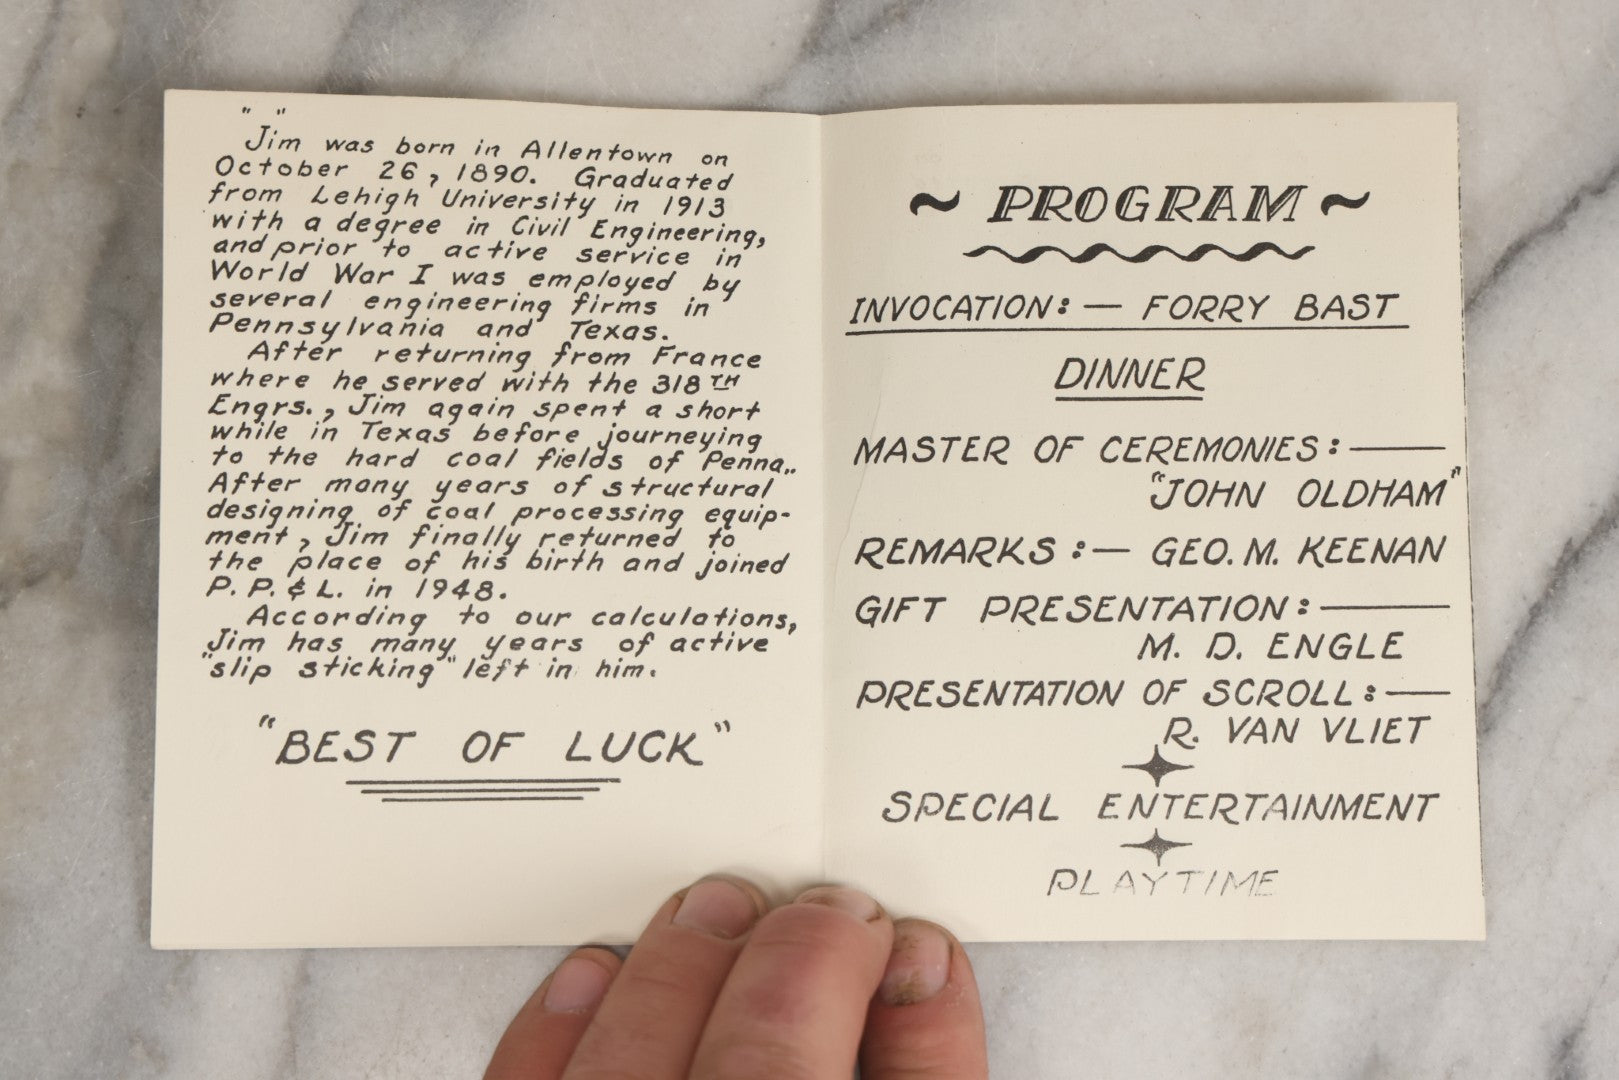 " "
Jim was born in Allentown on
October 26, 1890. Graduated
from Lehigh University in 1913
with a degree in Civil Engineering,
and prior to active service in
World War I was employed by
several engineering firms in
Pennsylvania and Texas.
After returning from France
where he served with the 318TH
Engrs., Jim again spent a short
while in Texas before journeying
to the hard coal fields of Penna..
After many years of structural
designing of coal processing equip-
ment, Jim finally returned to
the place of his birth and joined
P. P. & L. in 1948.
According to our calculations,
Jim has many years of active
"slip sticking" left in him.
"BEST OF LUCK"
~ PROGRAM ~
INVOCATION:— FORRY BAST
DINNER
MASTER OF CEREMONIES:—
"JOHN OLDHAM"
REMARKS:— GEO. M. KEENAN
GIFT PRESENTATION:—
M. D. ENGLE
PRESENTATION OF SCROLL:—
R. VAN VLIET
SPECIAL ENTERTAINMENT
PLAYTIME